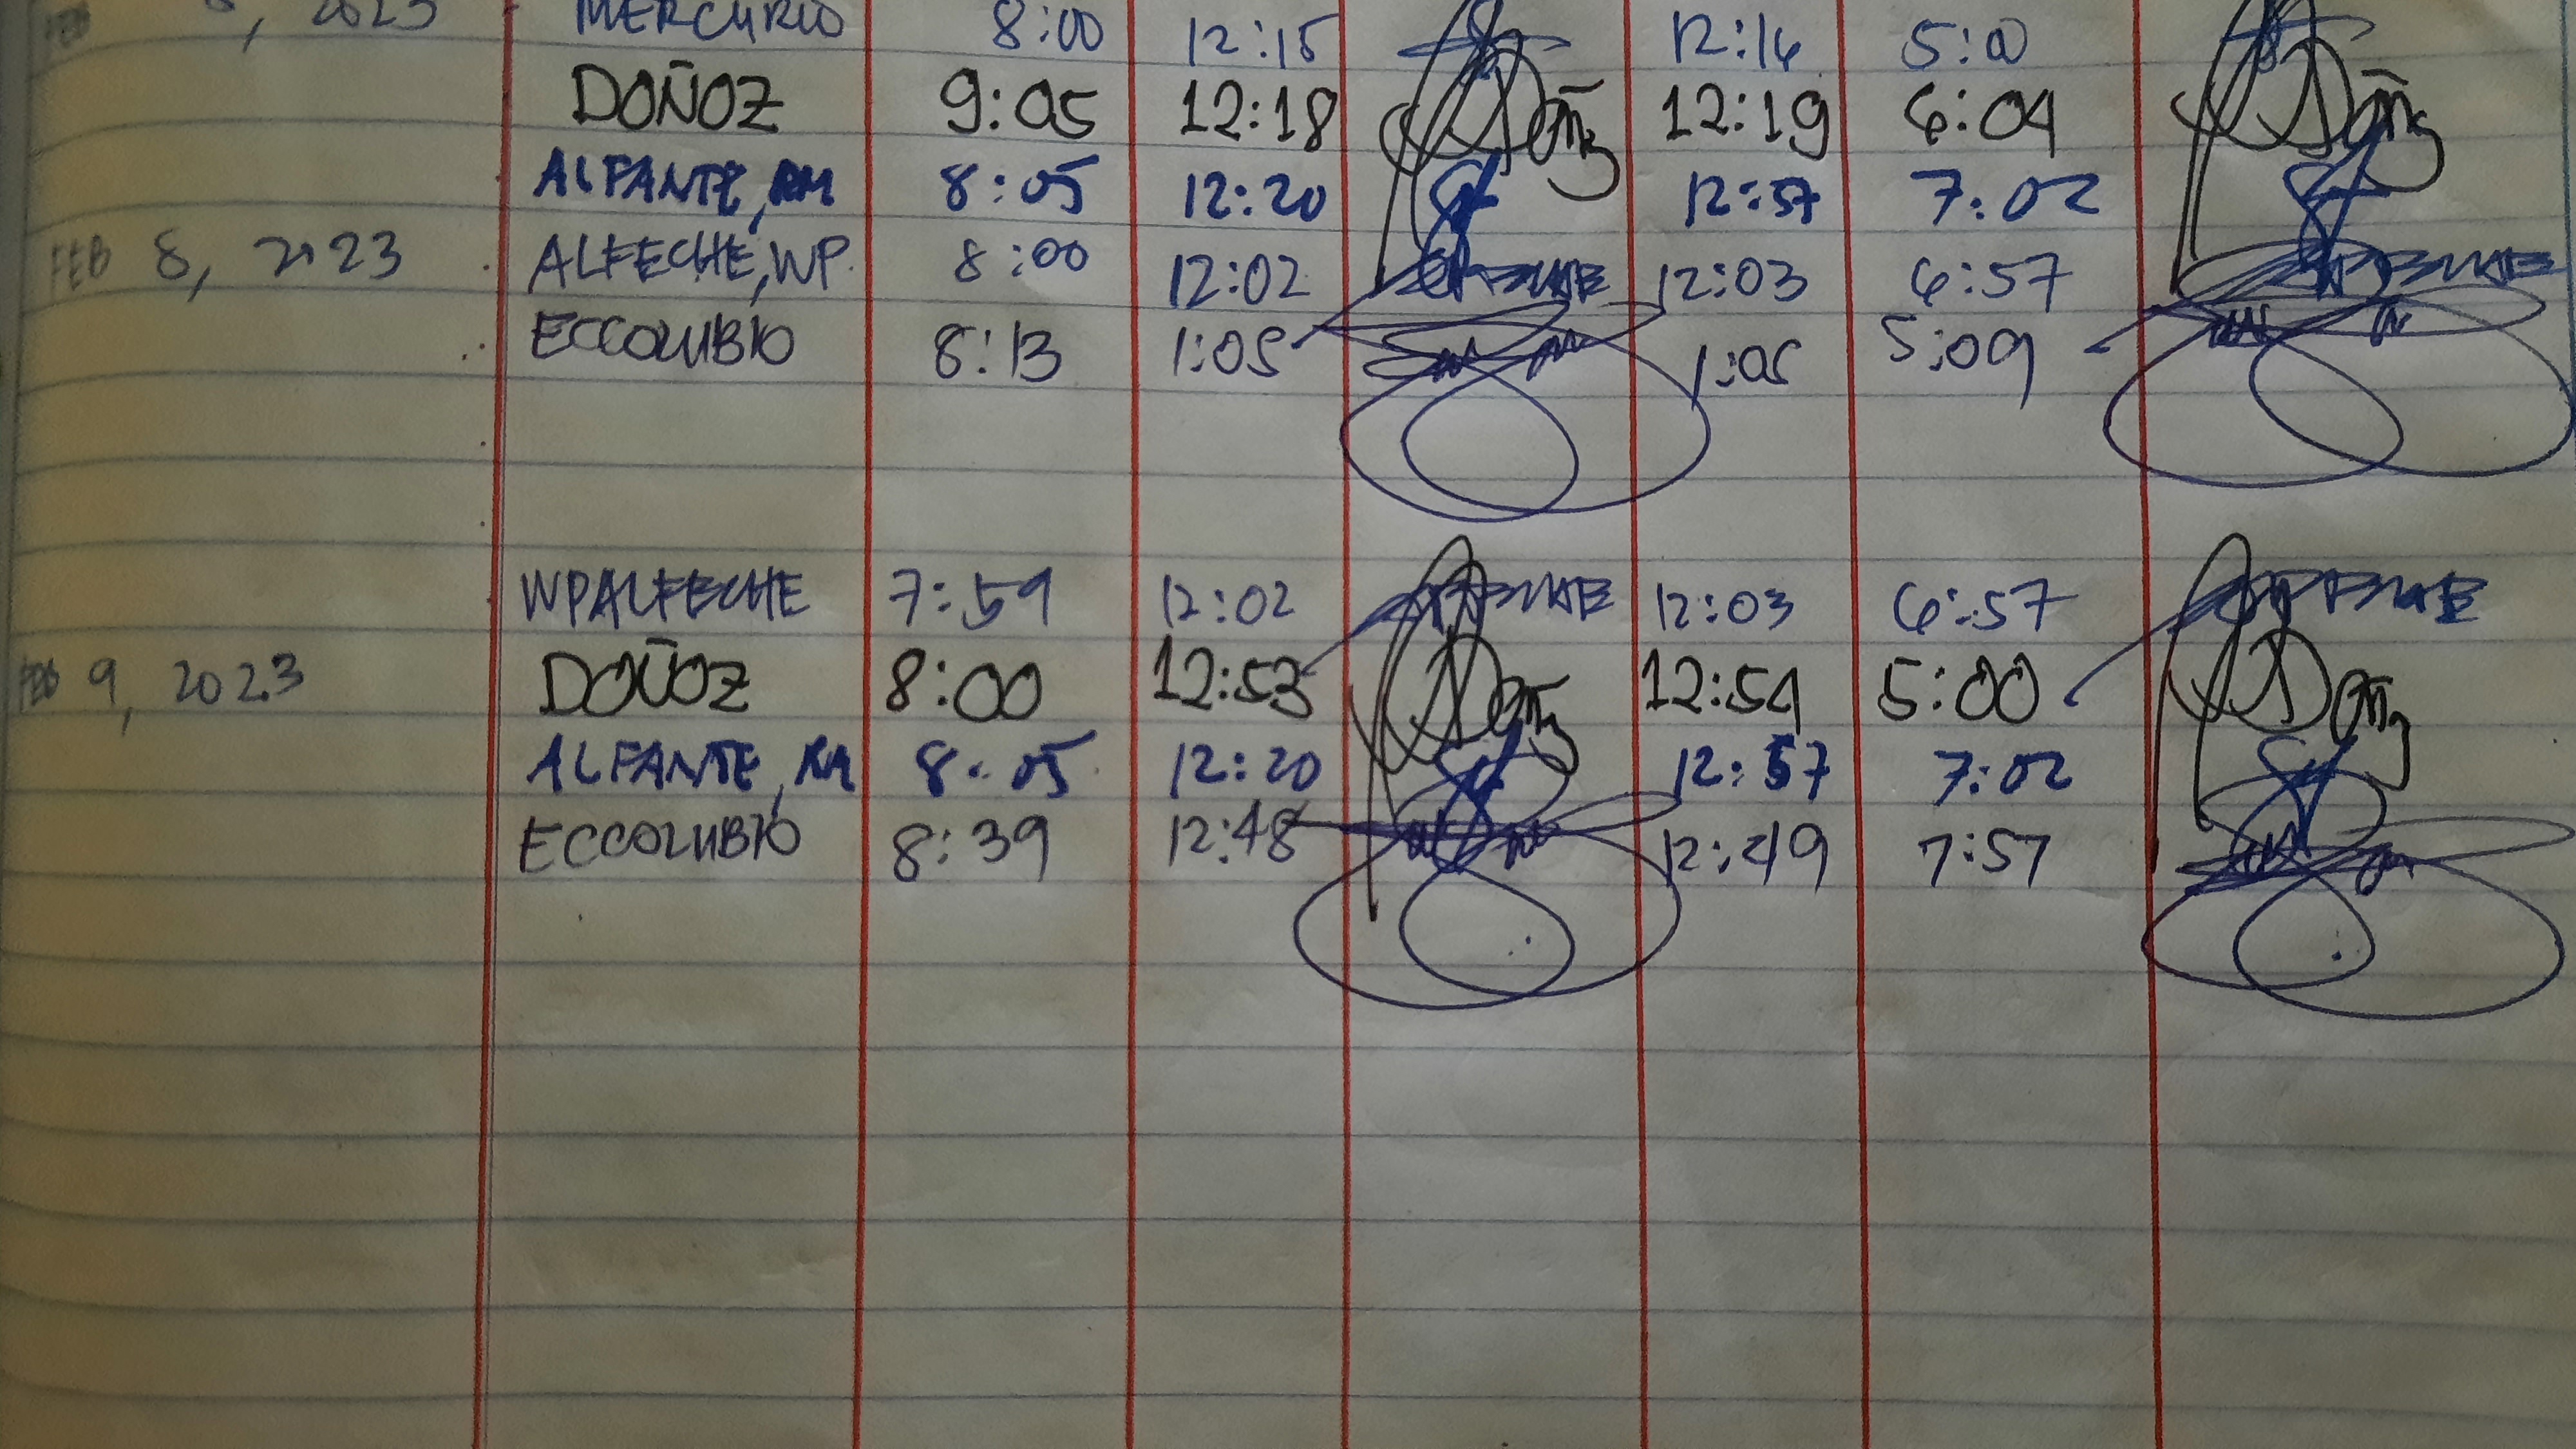 , 2023 MERCURIO 8:00 12:15 12:16 5:00
DOÑOZ 9:05 12:18 12:19 6:04
ALFANTE, RM 8:05 12:20 12:57 7:02
FEB 8, 2023 ALFECHE, WP. 8:00 12:02 12:03 6:57
ECCOLUBIO 8:13 1:05 1:05 5:09
WPALFECHE 7:59 12:02 12:03 6:57
FEB 9, 2023 DOÑOZ 8:00 12:53 12:54 5:00
ALFANTE, RM 8:05 12:20 12:57 7:02
ECCOLUBIO 8:39 12:48 12:49 7:57